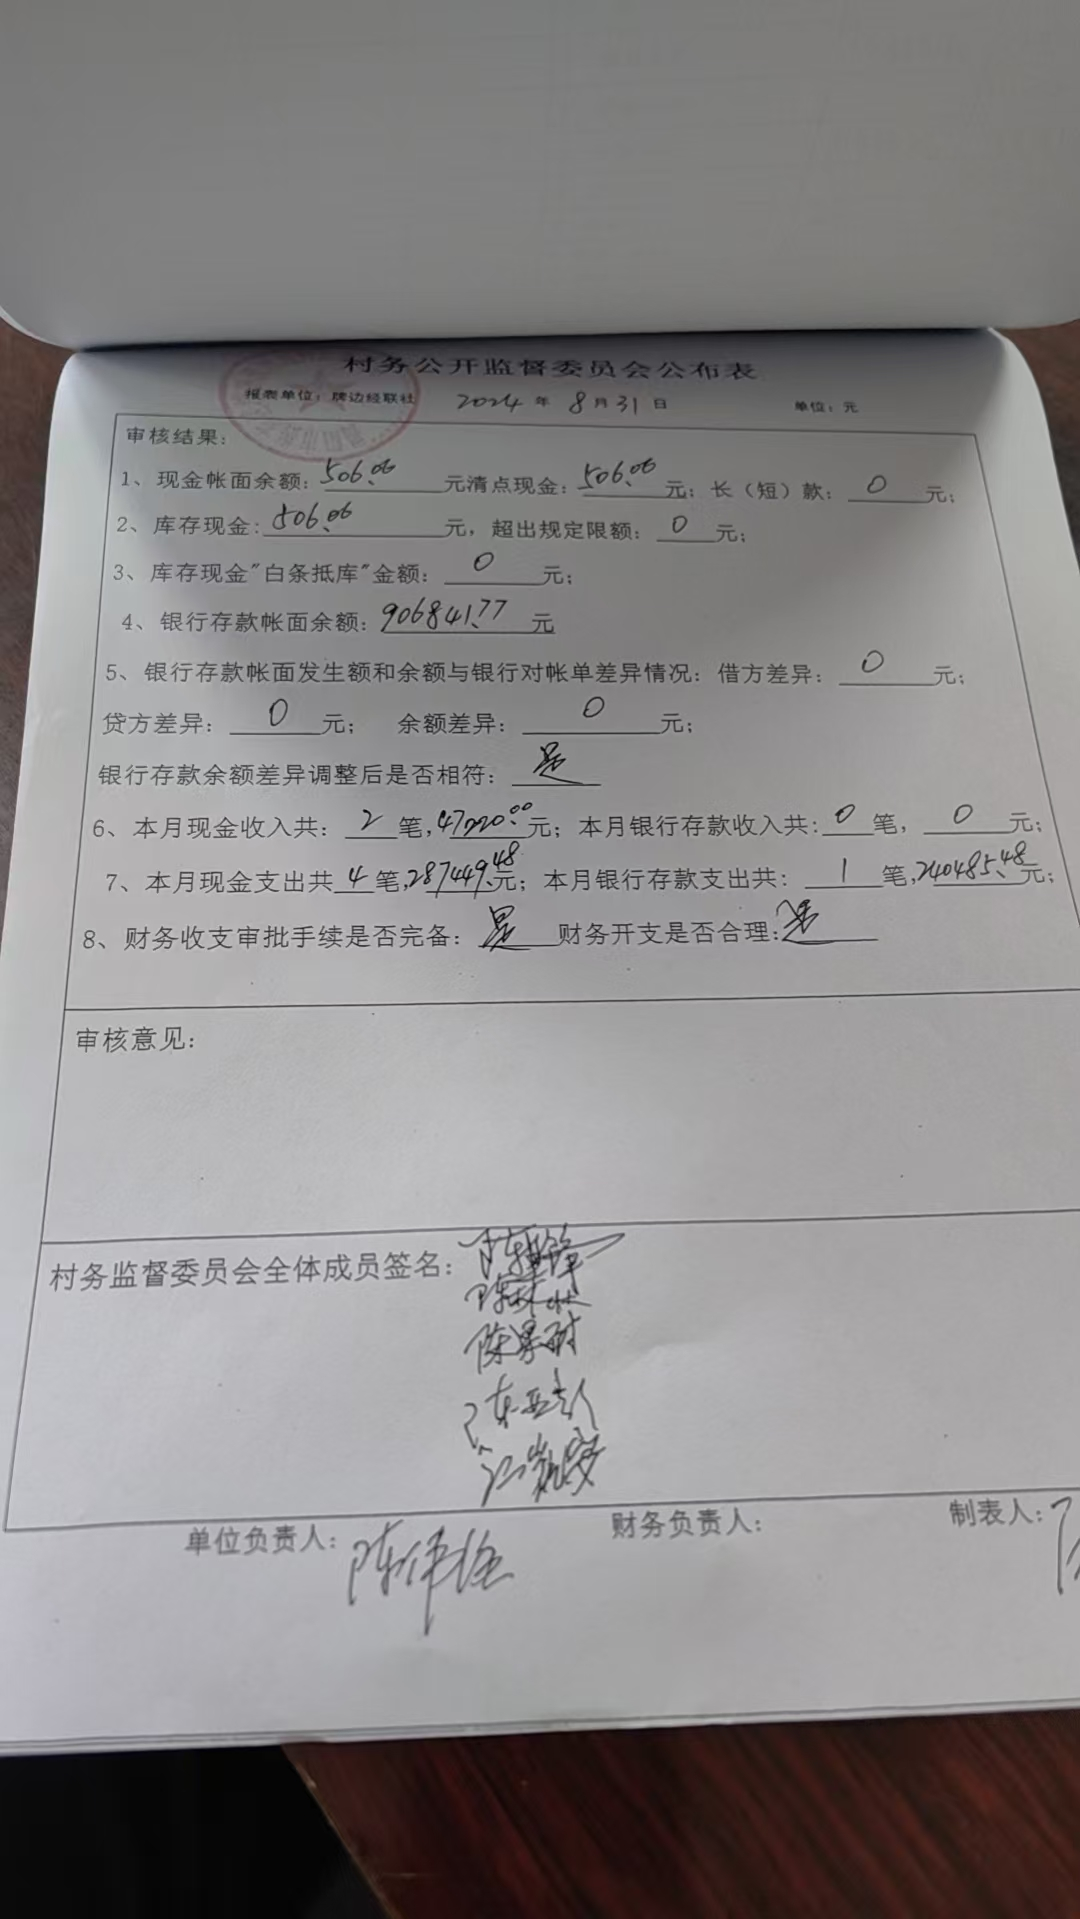 村务公开监督委员会公布表
报表单位：牌边经联社 2024年8月31日 单位：元
审核结果：
1、现金帐面余额：506.06元清点现金：506.06元；长（短）款：0元；
2、库存现金：506.06元，超出规定限额：0元；
3、库存现金"白条抵库"金额：0元；
4、银行存款帐面余额：906841.77元
5、银行存款帐面发生额和余额与银行对帐单差异情况：借方差异：0元；
贷方差异：0元； 余额差异：0元；
银行存款余额差异调整后是否相符：是
6、本月现金收入共：2笔，47220.00元；本月银行存款收入共：0笔，0元；
7、本月现金支出共4笔，287449.48元；本月银行存款支出共：1笔，240485.48元；
8、财务收支审批手续是否完备：是 财务开支是否合理：是
审核意见：
村务监督委员会全体成员签名：
单位负责人： 财务负责人： 制表人：